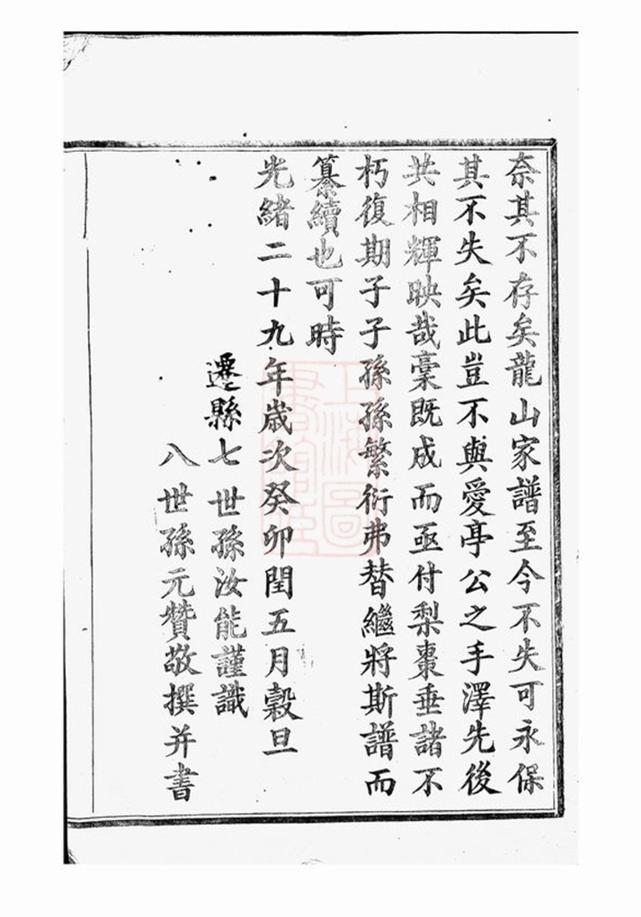 奈其不存矣龍山家譜至今不失可永保
其不失矣此豈不與愛亭公之手澤先後
共相輝映哉稾既成而亟付梨棗垂諸不
朽復期子子孫孫繁衍弗替繼將斯譜而
纂續也可時
光緒二十九年歲次癸卯閏五月穀旦
遷縣七世孫汝能謹識
八世孫元贊敬撰并書
上海圖
書館藏